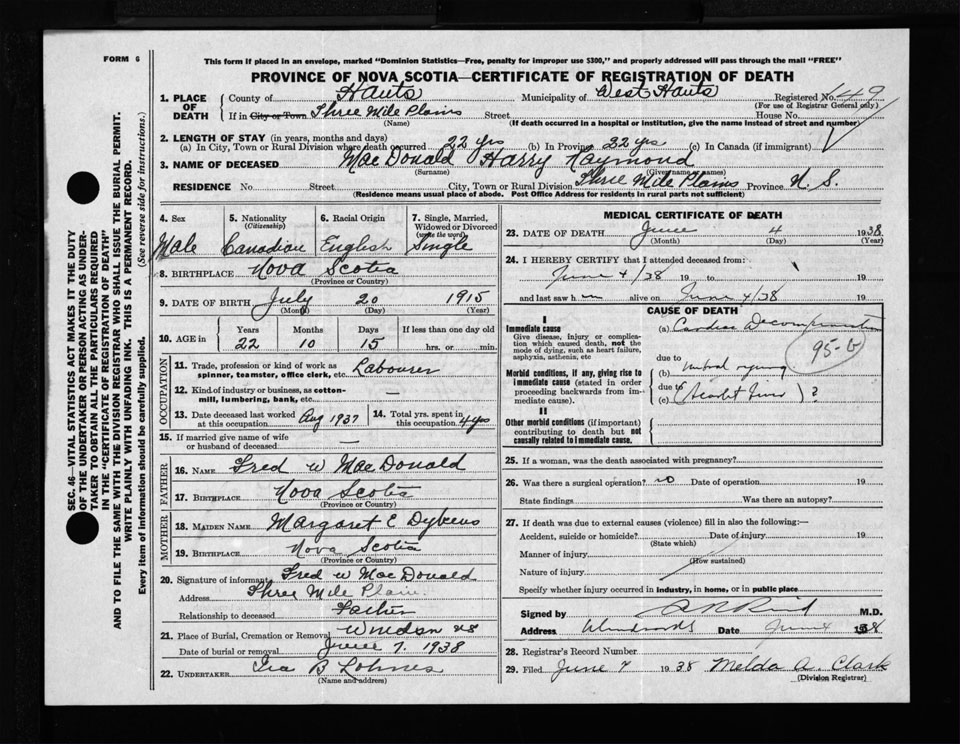 FORM 6
This form if placed in an envelope, marked "Dominion Statistics—Free, penalty for improper use $300," and properly addressed will pass through the mail "FREE"
PROVINCE OF NOVA SCOTIA—CERTIFICATE OF REGISTRATION OF DEATH
1. PLACE OF DEATH { County of Hants Municipality of West Hants Registered No. 149
(For use of Registrar General only)
If in City or Town Three Mile Plains Street House No.
(Name) (If death occurred in a hospital or institution, give the name instead of street and number)
2. LENGTH OF STAY (in years, months and days)
(a) In City, Town or Rural Division where death occurred 22 yrs (b) In Province 22 yrs (c) In Canada (if immigrant)
3. NAME OF DECEASED MacDonald Harry Raymond
(Surname) (Given name or names)
RESIDENCE No. Street City, Town or Rural Division Three Mile Plains Province N. S.
(Residence means usual place of abode. Post Office Address for residents in rural parts not sufficient)
SEC. 46—VITAL STATISTICS ACT MAKES IT THE DUTY
OF THE UNDERTAKER OR PERSON ACTING AS UNDER-
TAKER TO OBTAIN ALL THE PARTICULARS REQUIRED
IN THE "CERTIFICATE OF DEATH"
AND TO FILE THE SAME WITH THE DIVISION REGISTRAR WHO SHALL ISSUE THE BURIAL PERMIT.
WRITE PLAINLY WITH UNFADING INK. THIS IS A PERMANENT RECORD.
Every item of Information should be carefully supplied. (See reverse side for instructions.)
4. Sex 5. Nationality (Citizenship) 6. Racial Origin 7. Single, Married, Widowed or Divorced (write the word)
Male Canadian English Single
8. BIRTHPLACE Nova Scotia
(Province or Country)
9. DATE OF BIRTH July 20 1915
(Month) (Day) (Year)
10. AGE in Years Months Days If less than one day old
22 10 15 hrs. or min.
OCCUPATION
11. Trade, profession or kind of work as spinner, teamster, office clerk, etc. Labourer
12. Kind of industry or business, as cotton-mill, lumbering, bank, etc. —
13. Date deceased last worked at this occupation Aug 1937 14. Total yrs. spent in this occupation 4 yrs
15. If married give name of wife or husband of deceased —
FATHER
16. NAME Fred W MacDonald
17. BIRTHPLACE Nova Scotia
(Province or Country)
MOTHER
18. MAIDEN NAME Margaret E Dykens
19. BIRTHPLACE Nova Scotia
(Province or Country)
20. Signature of informant Fred W MacDonald
Address Three Mile Plain
Relationship to deceased Father
21. Place of Burial, Cremation or Removal Windsor NS
Date of burial or removal June 7. 1938
22. UNDERTAKER Ira B Lohnes
(Name and address)
MEDICAL CERTIFICATE OF DEATH
23. DATE OF DEATH June 4 1938
(Month) (Day) (Year)
24. I HEREBY CERTIFY that I attended deceased from:
June 4/38 19 to 19
and last saw him alive on June 4/38 19
CAUSE OF DEATH
I
Immediate cause
Give disease, injury or complication which caused death, not the mode of dying, such as heart failure, asphyxia, asthenia, etc
(a) Cardiac Decompensation
95-b
due to
Morbid conditions, if any, giving rise to immediate cause (stated in order proceeding backwards from immediate cause).
(b) Mitral
due to
(c) Scarlet Fever ) ?
II
Other morbid conditions (if important) contributing to death but not causally related to immediate cause.
25. If a woman, was the death associated with pregnancy?
26. Was there a surgical operation? no Date of operation 19
State findings Was there an autopsy?
27. If death was due to external causes (violence) fill in also the following:—
Accident, suicide or homicide? Date of injury 19
(State which)
Manner of injury
(How sustained)
Nature of injury
Specify whether injury occurred in industry, in home, or in public place
Signed by M.D.
Address Date June 4 1938
28. Registrar's Record Number
29. Filed June 7 1938 Melda A. Clark
(Division Registrar)